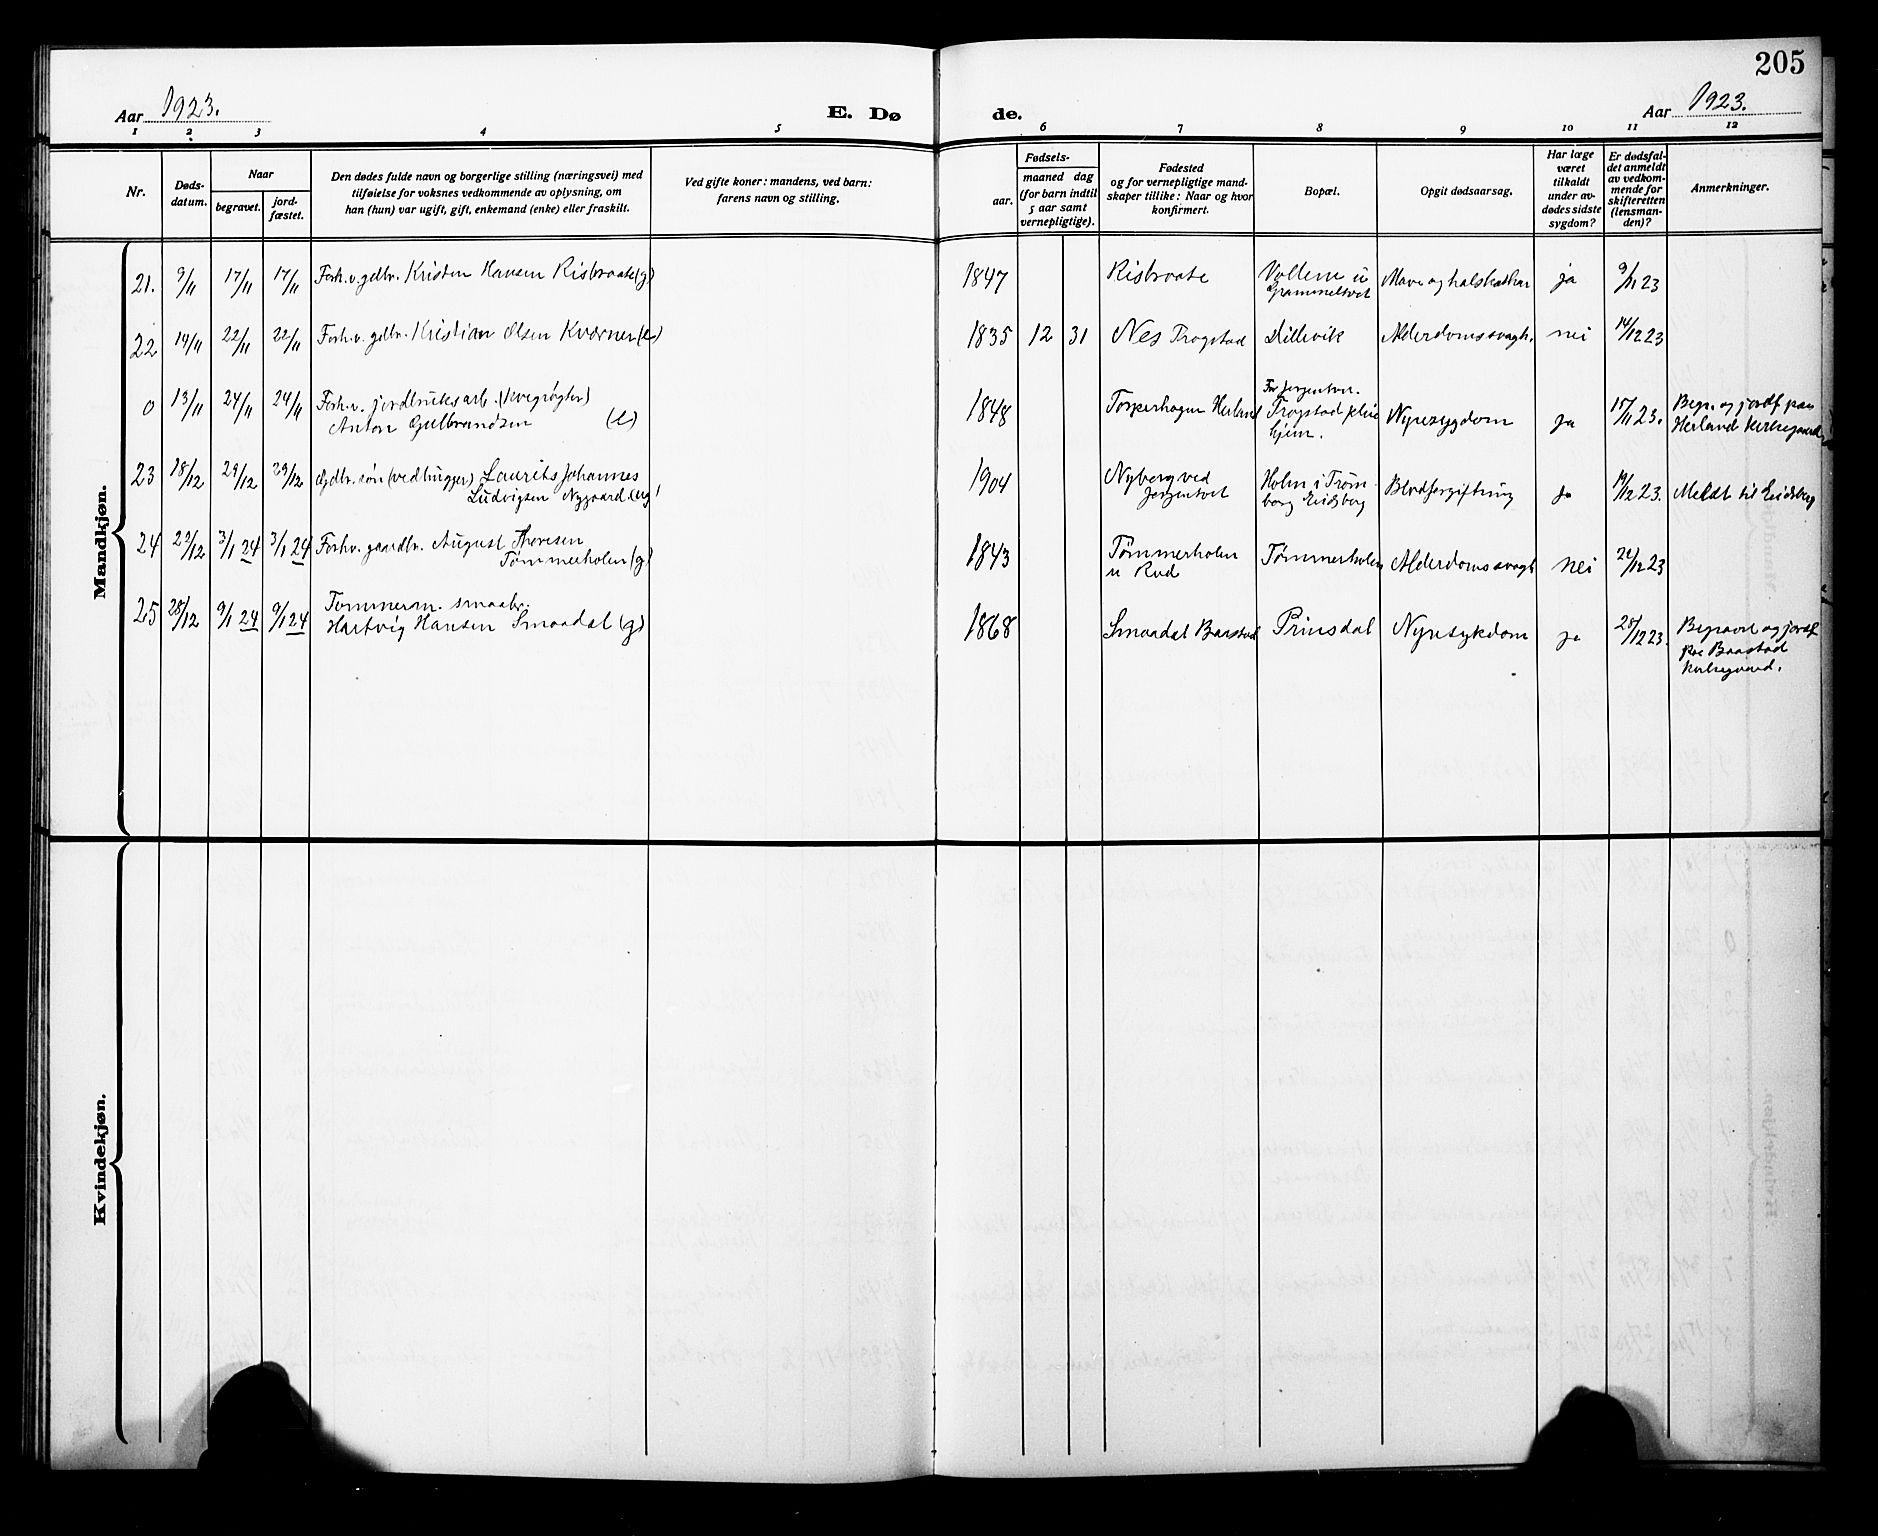 205
Aar 1923.
E. Dø
de.
Aar 1923.
1 2 3 4 5 6 7 8 9 10 11 12
Nr.
Døds-
datum.
Naar
begravet.
jord-
fæstet.
Den dødes fulde navn og borgerlige stilling (næringsvei) med
tilføielse for voksnes vedkommende av oplysning, om
han (hun) var ugift, gift, enkemand (enke) eller fraskilt.
Ved gifte koner: mandens, ved barn:
farens navn og stilling.
Fødsels-
aar.
maaned dag
(for barn indtil
5 aar samt
vernepligtige).
Fødested
og for vernepligtige mand-
skaper tillike: Naar og hvor
konfirmert.
Bopæl.
Opgit dødsaarsag.
Har læge
været
tilkaldt
under av-
dødes sidste
sygdom?
Er dødsfal-
det anmeldt
av vedkom-
mende for
skifteretten
(lensman-
den)?
Anmerkninger.
Mandkjøn.
21. 9/11 17/11 17/11 Forh.v. gdbr. Kristen Hansen Risbraate (g)
1847 Risbraate Vollene u Grammeltvet Mave og halskathar ja 9/11 23
22 14/11 22/11 22/11 Forh.v. gdbr. Kristian Olsen Kværner (e)
1835 12 31 Nes Trogstad Dillevik Alderdomssvagh. nei 14/12 23
0 13/11 24/11 24/11 Forh.v. jordbruksarb. (kvegrøgter)
Anton Gulbrandsen (e)
1848 Torperhagen Herland For Jørgentvet. Trogstad pleie hjem. Nyresygdom ja 15/11 23. Begr. og jordf. paa
Herland kirkegaard
23 18/12 29/12 29/12 Gdbr. søn (vedhugger) Laurits Johannes
Ludvigsen Nygaard (ug)
1904 Nyberg ved Jørgentvet Holm i Trøm- borg Eidsberg Blodforgiftning ja 19/12 23. Meldt til Eidsberg
24 22/12 3/1 24 3/1 24 Forhv. gaardbr. August Thoresen
Tømmerholen (g)
1843 Tømmerholen u Rud Tømmerholen Alderdomssvagh nei 22/12 23
25 28/12 9/1 24 9/1 24 Tømmerm. smaabr.
Hartvig Hansen Smaadal (g)
1868 Smaadal Baastad Prinsdal Nyresykdom ja 28/12 23. Begravet og jordf.
paa Baastad
kirkegaard.
Kvindekjøn.